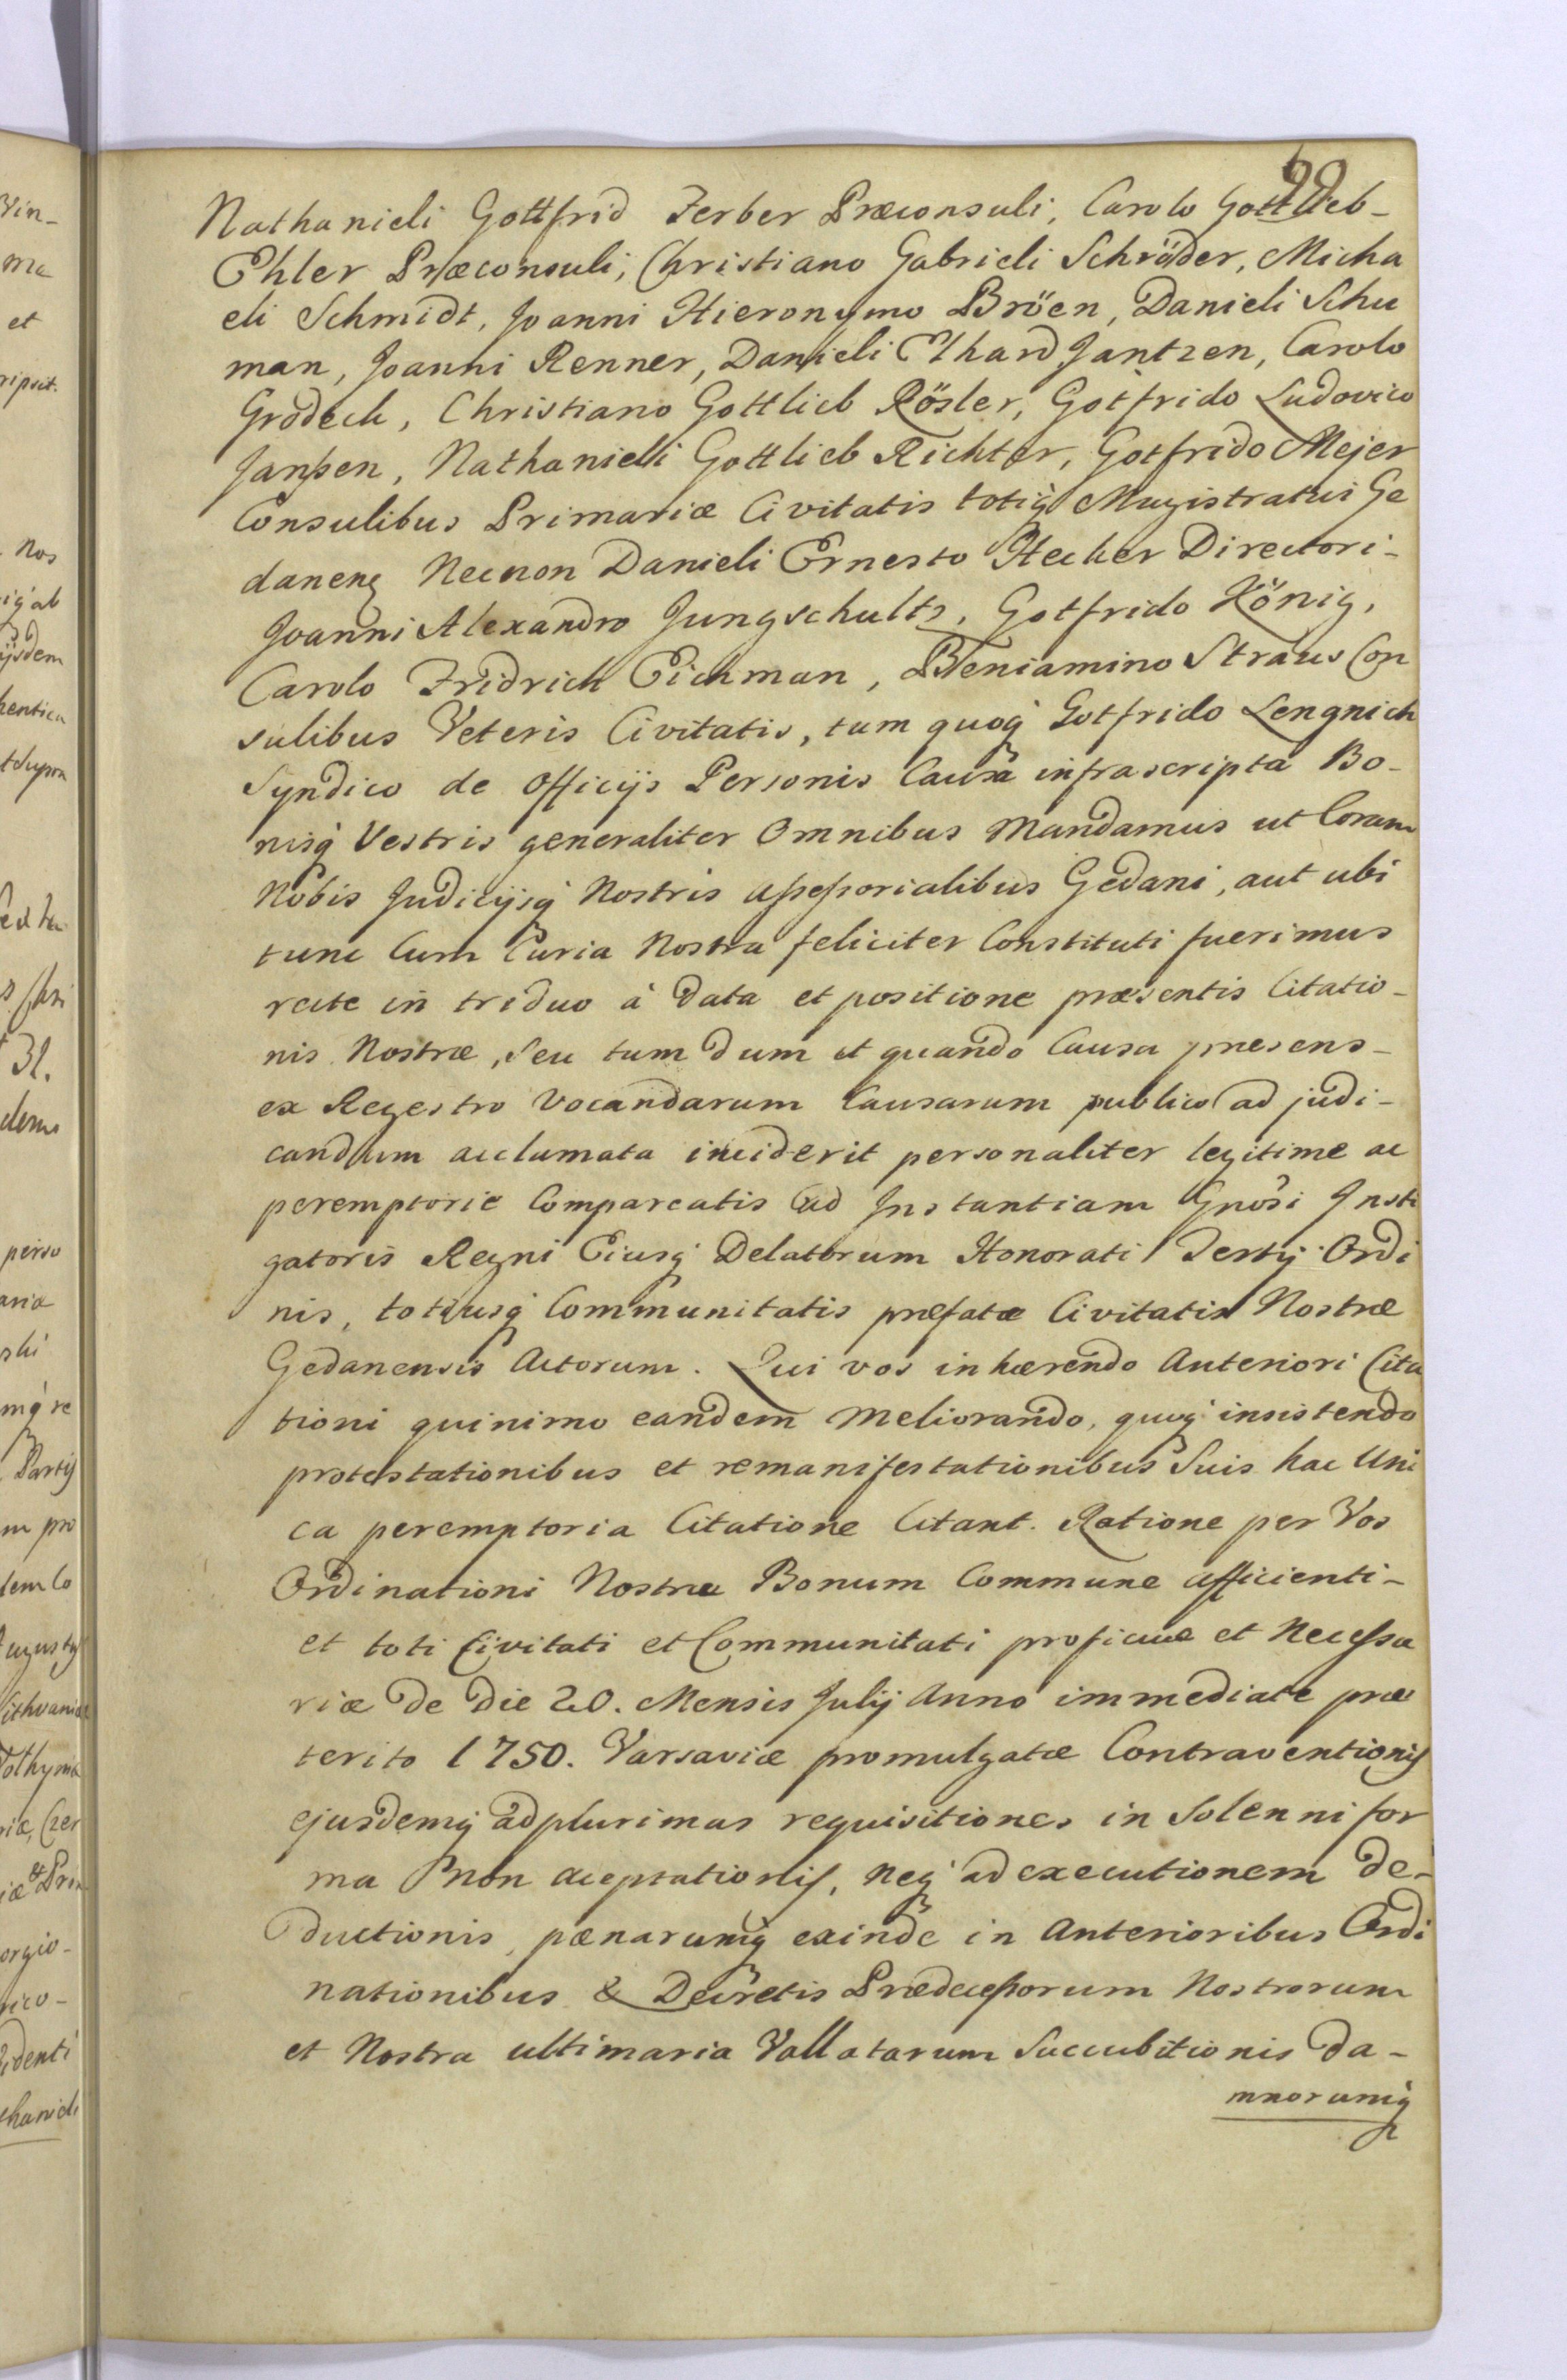 22
Nathanieli Gottfrid Ferber Præconsuli, Carolo Gottlieb-
Ehler Præconsuli, Christiano Gabrieli Schröder, Micha
eli Schmidt, Joanni Hieronymo Bröen, Danieli Schu
man, Joanni Renner, Danieli Ehard Jantzen, Carolo
Grodeck, Christiano Gottlieb Rösler, Gotfrido Ludovico
Janßen, Nathanieli Gottlieb Richter, Gotfrido Mejer
Consulibus Primariæ Civitatis totiq Magistratui Ge
danenq Necnon Danieli Ernesto Hecker Directori-
Joanni Alexandro Jungschultz, Gotfrido König,
Carolo Fridrich Eichman, Beniamino Straus Con
sulibus Veteris Civitatis, tum quoq Gotfrido Lengnich
Syndico de Officijs Personis Causa infrascripta Bo-
nisq Vestris generaliter Omnibus Mandamus ut Coram
Nobis Judicijsq Nostris Aßeßorialibus Gedani, aut ubi
tunc Cum Curia Nostra feliciter Constituti fuerimus
recte in triduo à Data et positione præsentis Citatio-
nis Nostræ, seu tum dum et quando Causa præsens-
ex Regestro Vocandarum Causarum publico ad judi-
candum acclamata inciderit personaliter legitime ac
peremptorie Compareatis ad Instantiam Gnosi Insti
gatoris Regni Eiusq Delatorum Honorati Tertij Ordi
nis, totiusq Communitatis præfatæ Civitatis Nostræ
Gedanensis Actorum. Qui vos inhærendo Anteriori Cita
tioni quinimo eandem Meliorando, quoq insistendo
protestationibus et remanifestationibus Suis hac Uni
ca peremptoria Citatione Citant. Ratione per Vos
Ordinationi Nostræ Bonum Commune afficienti-
et toti Civitati et Communitati proficuæ et Neceßa
riæ de Die 20. Mensis Julij Anno immediate præ
terito 1750. Varsaviæ promulgatæ Contraventionis
ejusdemq ad plurimas requisitiones in Solenni for
ma non aceptationis, neq ad executionem de-
ductionis, pænarumq exinde in Anterioribus Ordi
nationibus & Decretis Prædeceßorum Nostrorum
et Nostra ultimaria Vallatarum Succubitionis da-
mnorumq